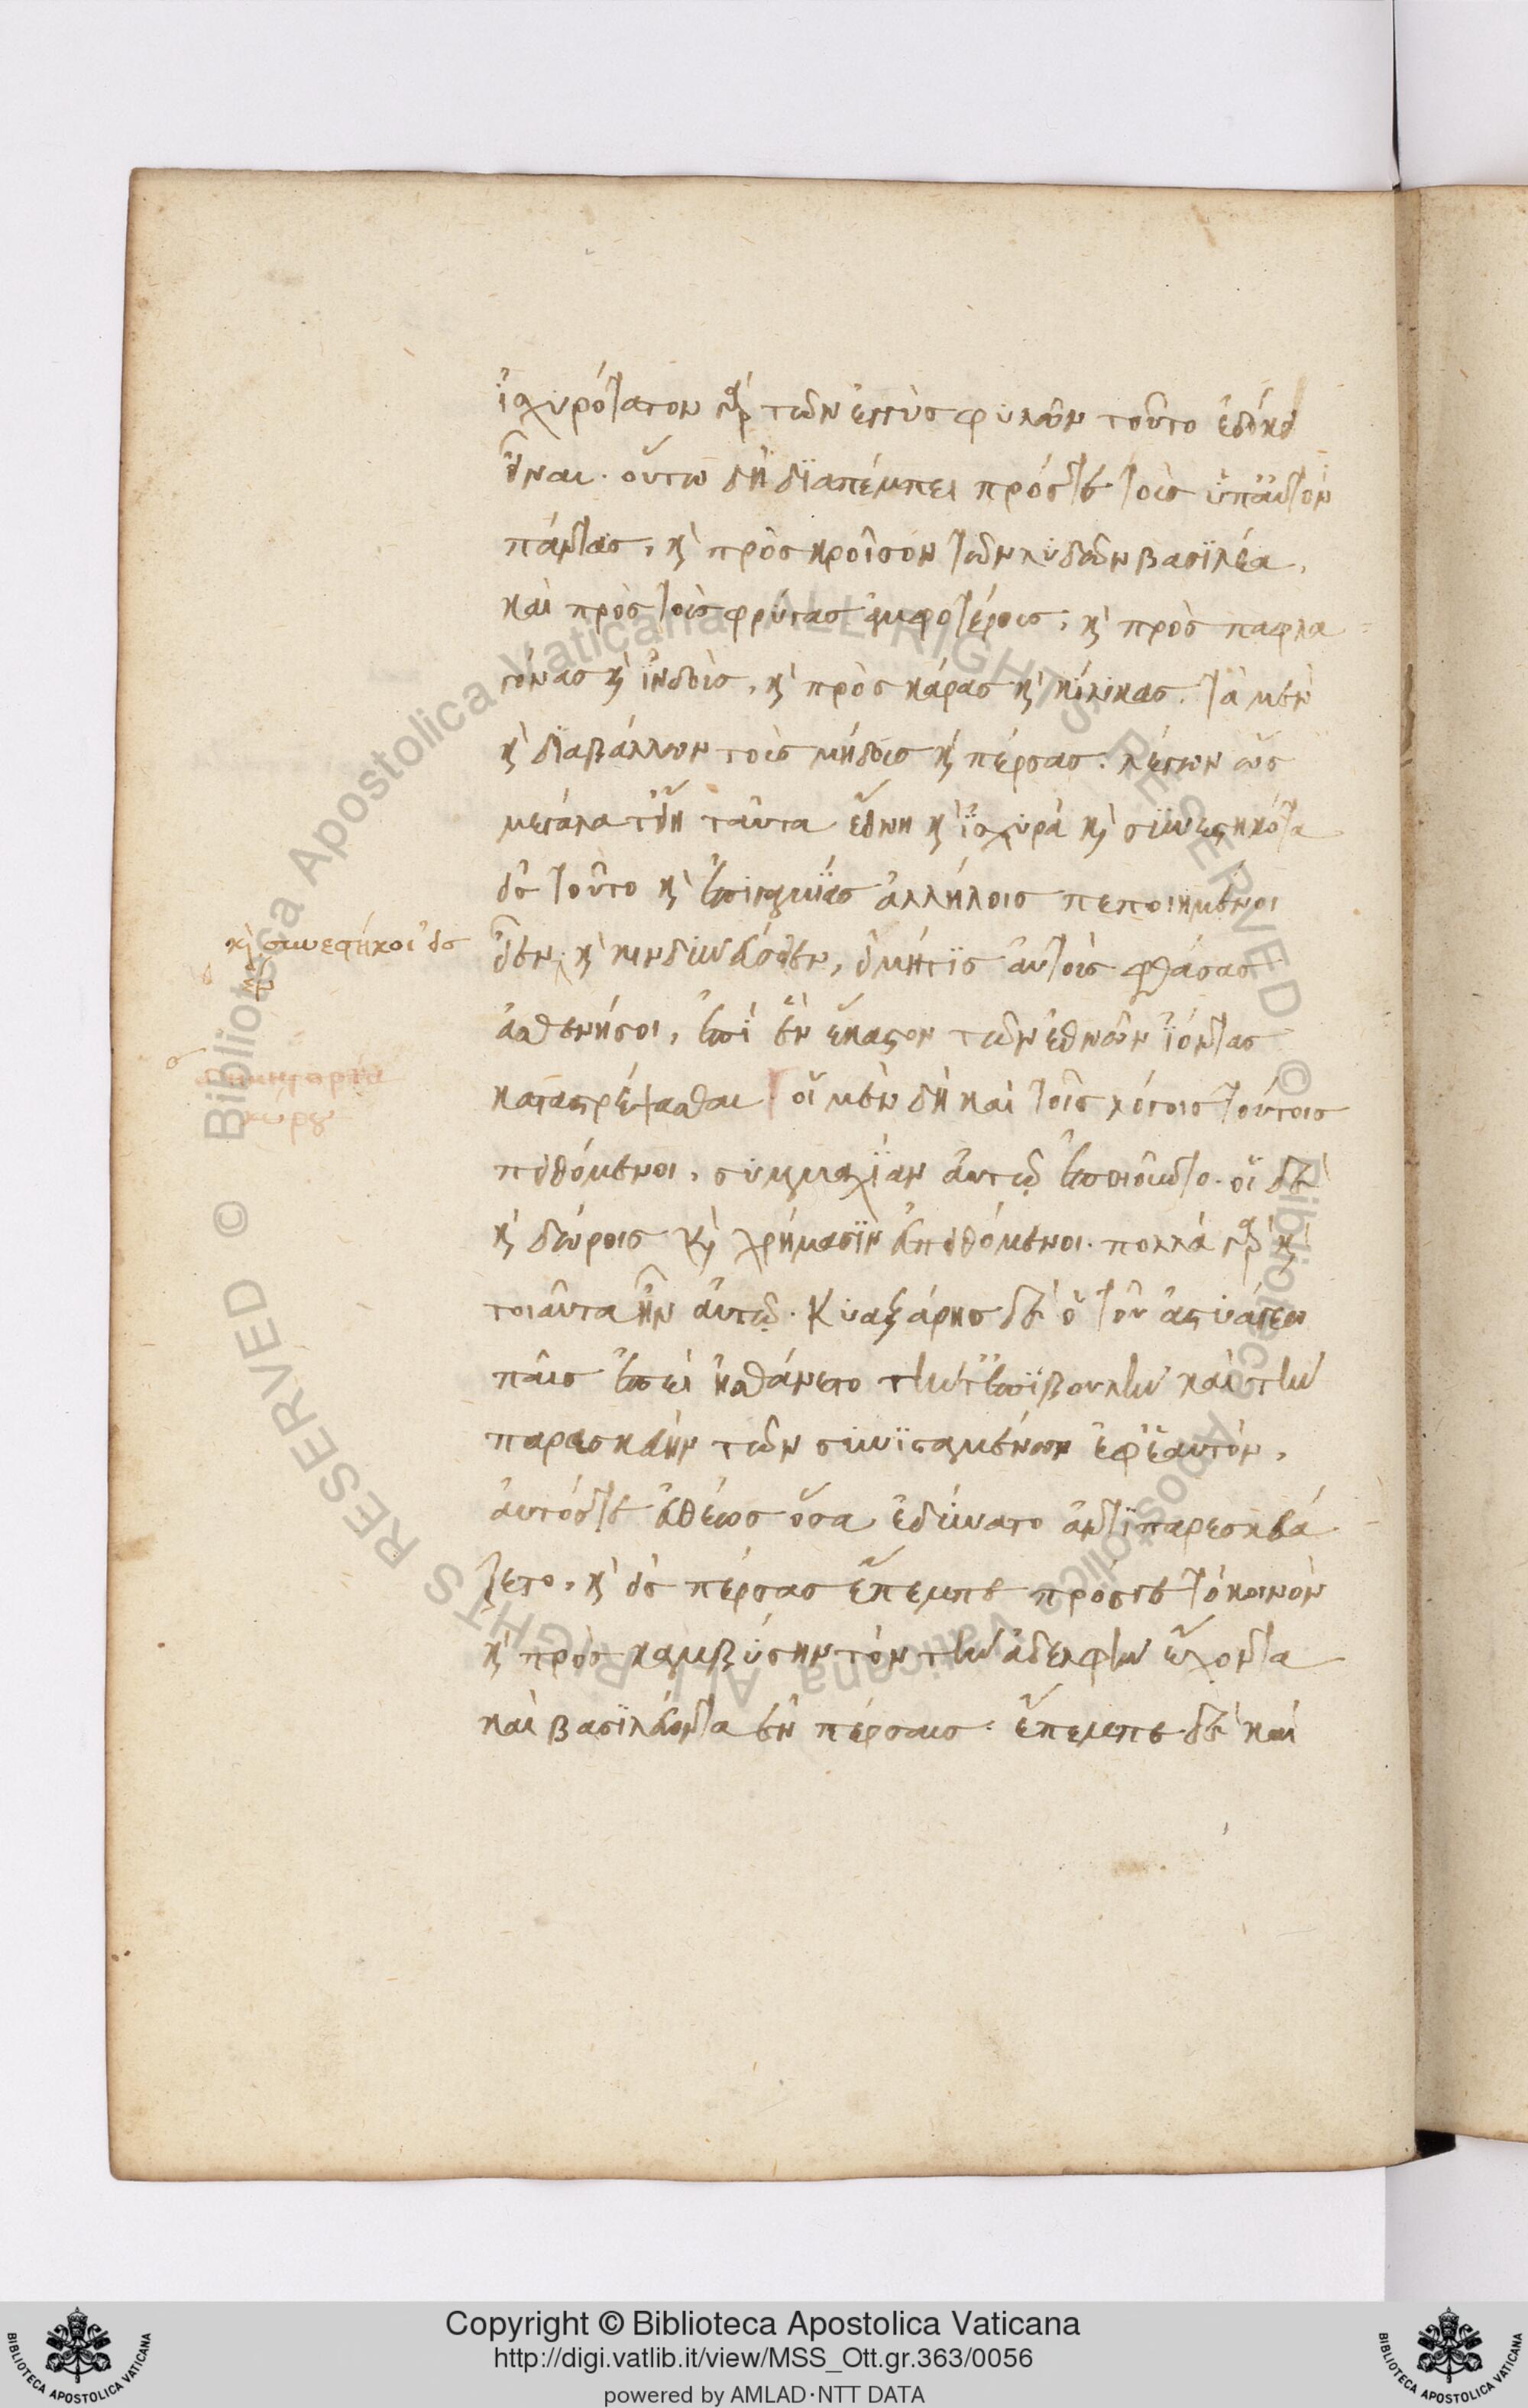 ἰσχυρότατον γὰρ τῶν ἐγγὺς φύλων τοῦτο ἐδόκει
εἶναι. οὕτω δὴ διαπέμπει πρός τε τοὺς ὑπ' αὐτὸν
πάντας, καὶ πρὸς κροῖσον τὸν λυδῶν βασιλέα,
καὶ πρὸς τοὺς φρύγας ἀμφοτέρους, καὶ πρὸς παφλα
γόνας καὶ ἰνδοὺς, καὶ πρὸς κάρας καὶ κίλικας. τὰ μὲν
καὶ διαβάλλων τοὺς μήδους καὶ πέρσας. λέγων ὡς
μεγάλα τ' εἴη ταῦτα ἔθνη καὶ ἰσχυρὰ καὶ συνεστηκότα
εἰς τοῦτο καὶ ἐπιγαμίας ἀλλήλοις πεποιημένοι
καὶ συνεστήκοι εἰς
εἶεν, καὶ κινδυνεύσοιεν, εἰ μή τις αὐτοὺς φθάσας
ἀσθενήσοι, ἐπὶ ἓν ἕκαστον τῶν ἐθνῶν ἰόντας
καταστρέψασθαι. οἱ μὲν δὴ καὶ τοῖς λόγοις τούτοις
πειθόμενοι, συμμαχίαν αὐτῷ ἐποιοῦντο. οἱ δὲ
καὶ δώροις καὶ χρήμασιν ἀπειθόμενοι. πολλὰ γὰρ καὶ
τοιαῦτα ἦν αὐτῷ. Κυαξάρης δὲ ὁ τοῦ ἀστυάγεω
παῖς ἐπεὶ ᾐσθάνετο τήν τ' ἐπιβουλὴν καὶ τὴν
παρασκευὴν τῶν συνισταμένων ἐφ' ἑαυτὸν,
αὐτός τε εὐθέως ὅσα ἐδύνατο ἀντιπαρεσκευά
ζετο, καὶ εἰς πέρσας ἔπεμπε πρός τε τὸ κοινὸν
καὶ πρὸς καμβύσην τὸν τὴν ἀδελφὴν ἔχοντα
καὶ βασιλεύοντα ἐν πέρσαις. ἔπεμπε δὲ καὶ
Copyright © Biblioteca Apostolica Vaticana
http://digi.vatlib.it/view/MSS_Ott.gr.363/0056
powered by AMLAD·NTT DATA
BIBLIOTECA APOSTOLICA VATICANA
BIBLIOTECA APOSTOLICA VATICANA
© Biblioteca Apostolica Vaticana ALL RIGHTS RESERVED
© Biblioteca Apostolica Vaticana ALL RIGHTS RESERVED